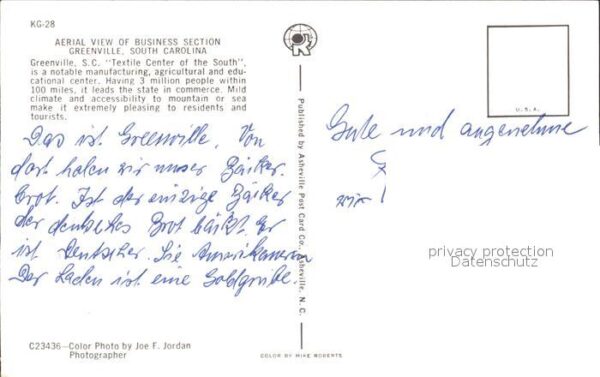 KG-28
AERIAL VIEW OF BUSINESS SECTION
GREENVILLE, SOUTH CAROLINA
Greenville, S.C. "Textile Center of the South",
is a notable manufacturing, agricultural and edu-
cational center. Having 3 million people within
100 miles, it leads the state in commerce. Mild
climate and accessibility to mountain or sea
make it extremely pleasing to residents and
tourists.
Das ist Greenville. Von
dort holen wir unser Bäcker
brot. Ist der einzige Bäcker
der deutsches Brot bäckt. Er
ist Deutscher. Die Amerikanerin
Der Laden ist eine Goldgrube.
C23436—Color Photo by Joe F. Jordan
Photographer
Published by Asheville Post Card Co., Asheville, N. C.
COLOR BY MIKE ROBERTS
U.S.A.
Gute und angenehme
privacy protection
Datenschutz